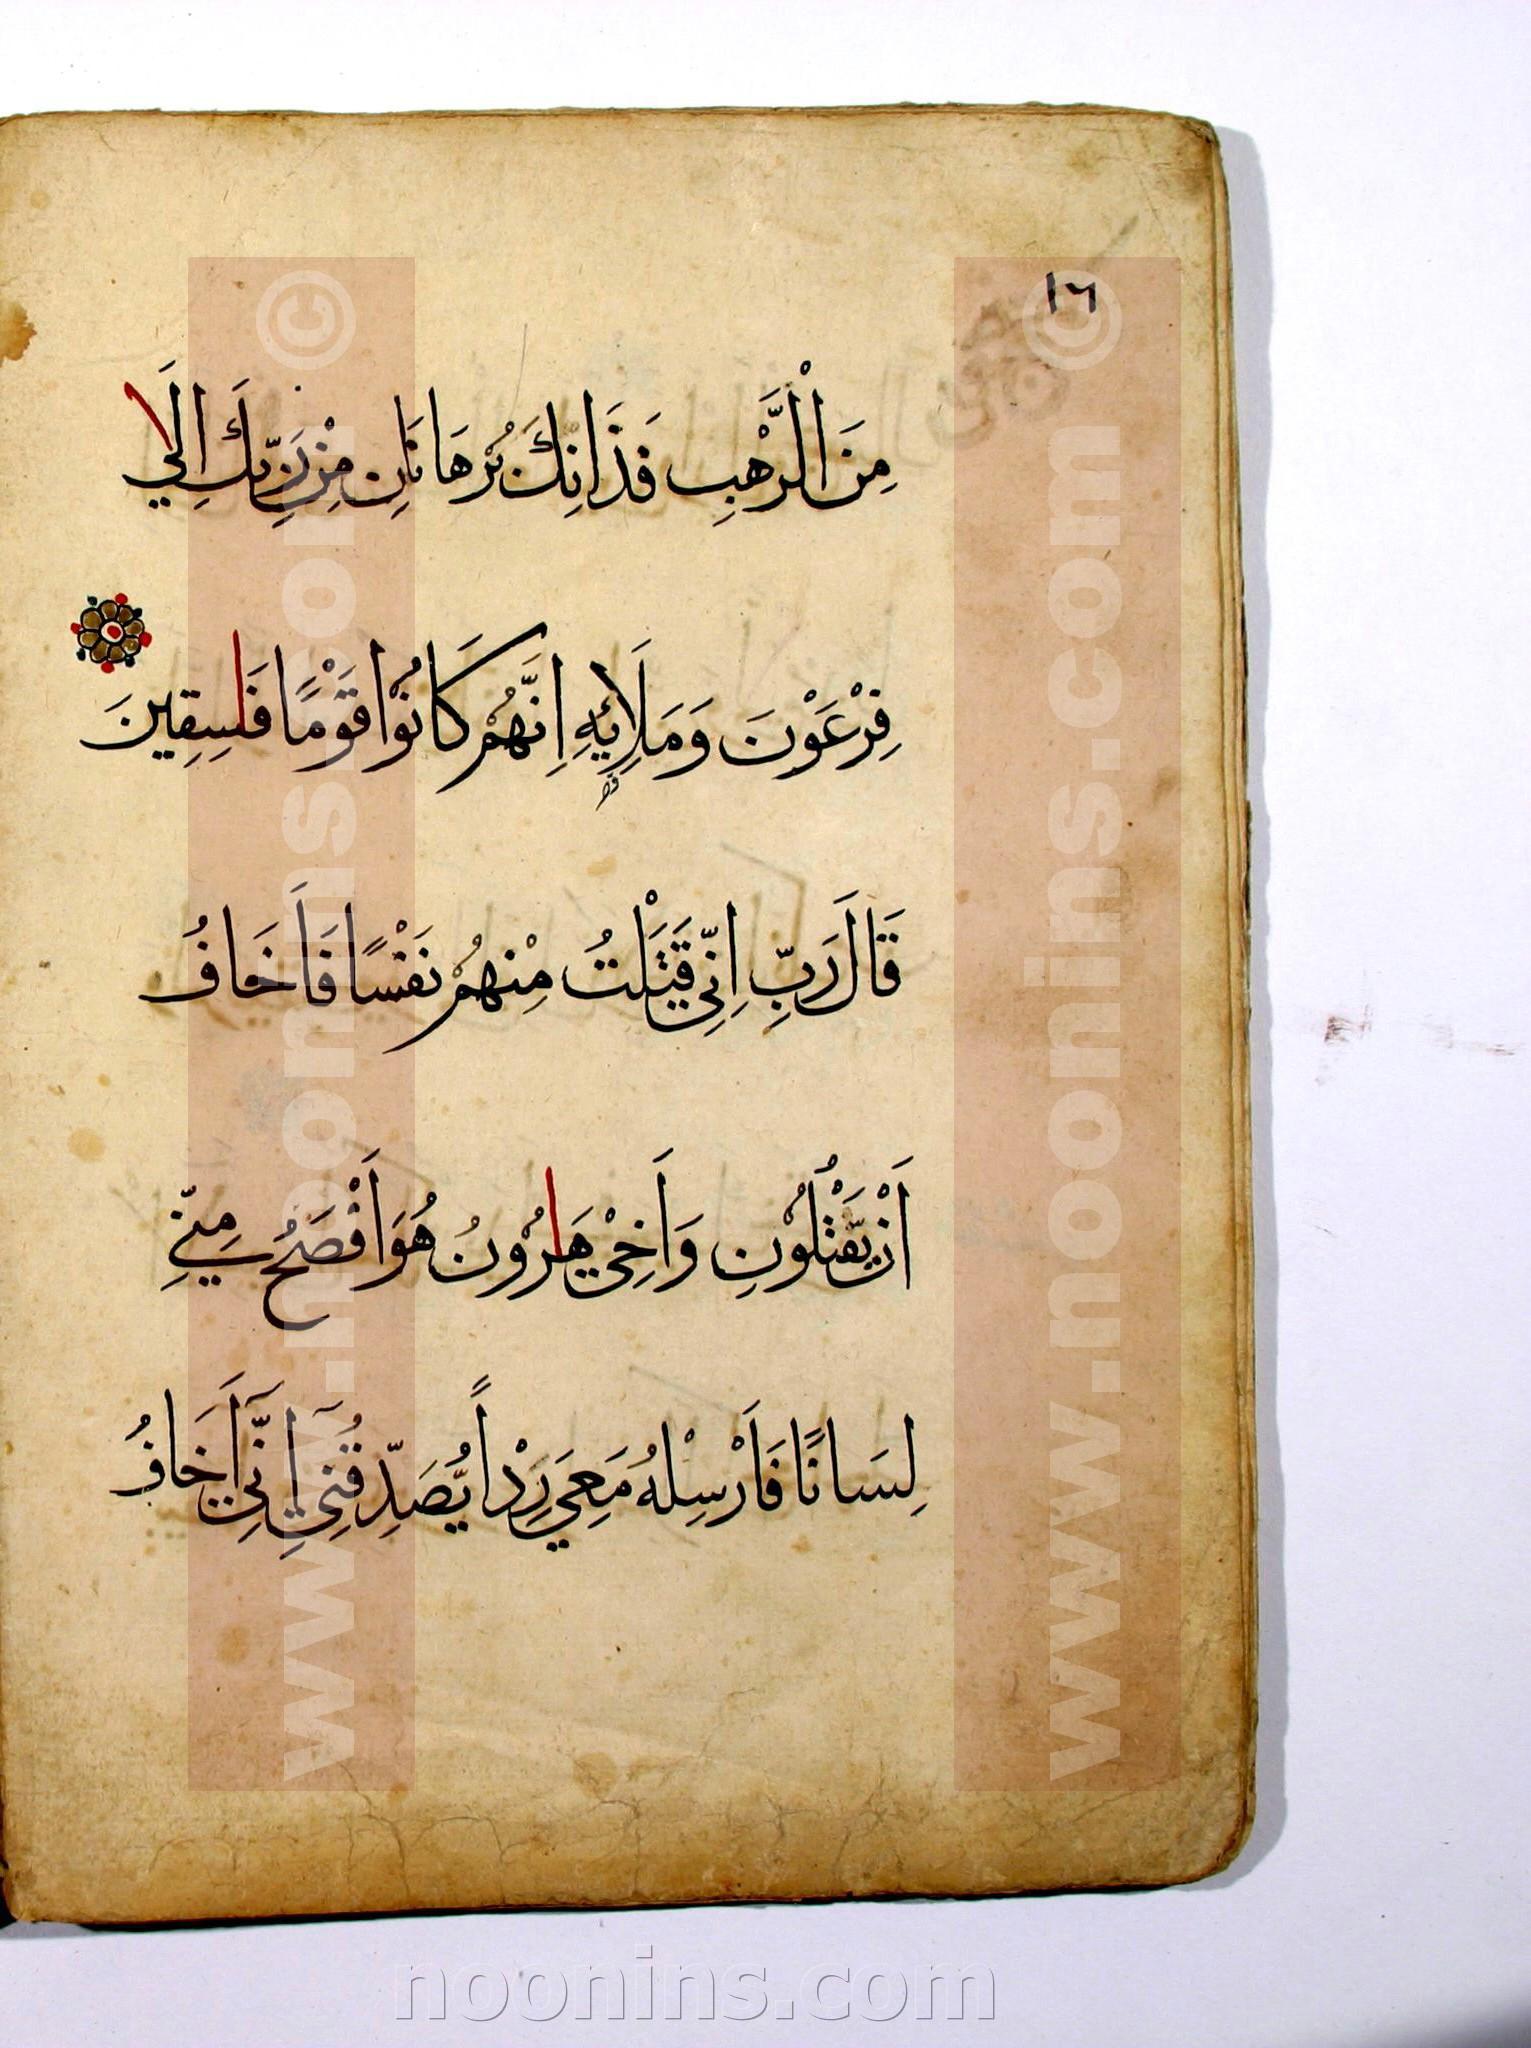 ١٦
مِنَ الْرَّهْبِ فَذَانِكَ بُرْهَانَانِ مِنْ رَبِّكَ اِلَي
فِرْعَوْنَ وَمَلَائِهِ اِنَّهُمْ كَانُوْا قَوْمًا فَاسِقِينَ
قَالَ رَبِّ اِنِّي قَتَلْتُ مِنْهُمْ نَفْسًا فَأَخَافُ
أَنْ يَقْتُلُوْنِ وَأَخِيْ هَارُوْنُ هُوَ أَفْصَحُ مِنِّي
لِسَانًا فَأَرْسِلْهُ مَعِيَ رِدْاً يُصَدِّقُنِي إِنِّي أَخَافُ
www.noonins.com ©
www.noonins.com ©
noonins.com